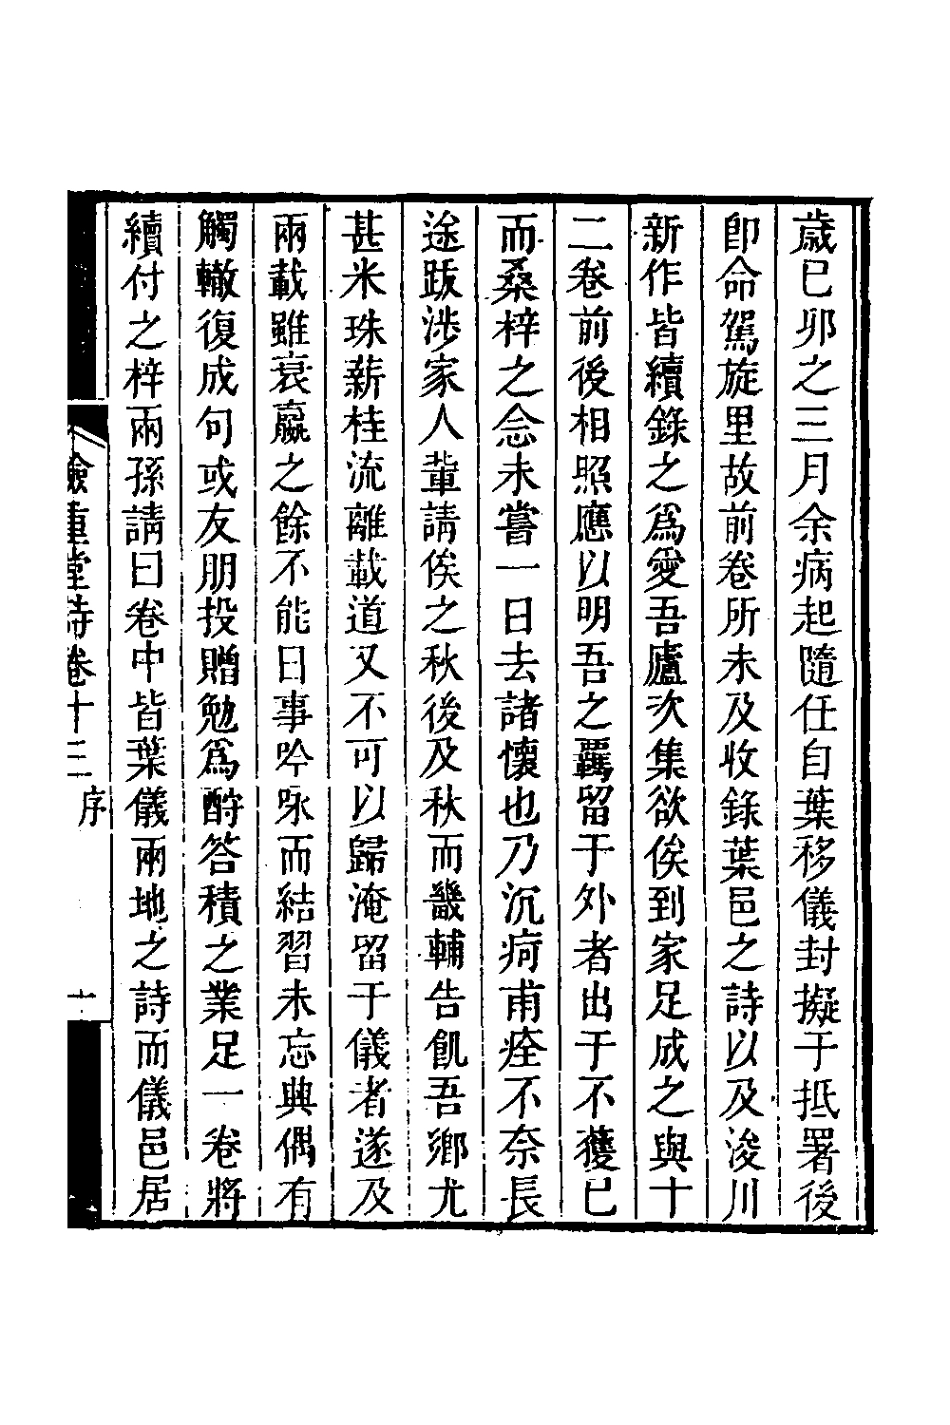 歲巳卯之三月余病起隨任自葉移儀封擬于抵署後
卽命駕旋里故前卷所未及收錄葉邑之詩以及浚川
新作皆續錄之爲愛吾廬次集欲俟到家足成之與十
二卷前後相照應以明吾之羈留于外者出于不獲已
而桑梓之念未嘗一日去諸懷也乃沉疴甫痊不奈長
途跋涉家人輩請俟之秋後及秋而畿輔告飢吾鄉尤
甚米珠薪桂流離載道又不可以歸淹留于儀者遂及
兩載雖衰羸之餘不能日事吟咏而結習未忘典偶有
觸轍復成句或友朋投贈勉爲酧答積之業足一卷將
續付之梓兩孫請曰卷中皆葉儀兩地之詩而儀邑居
重堂詩卷十三
序
一